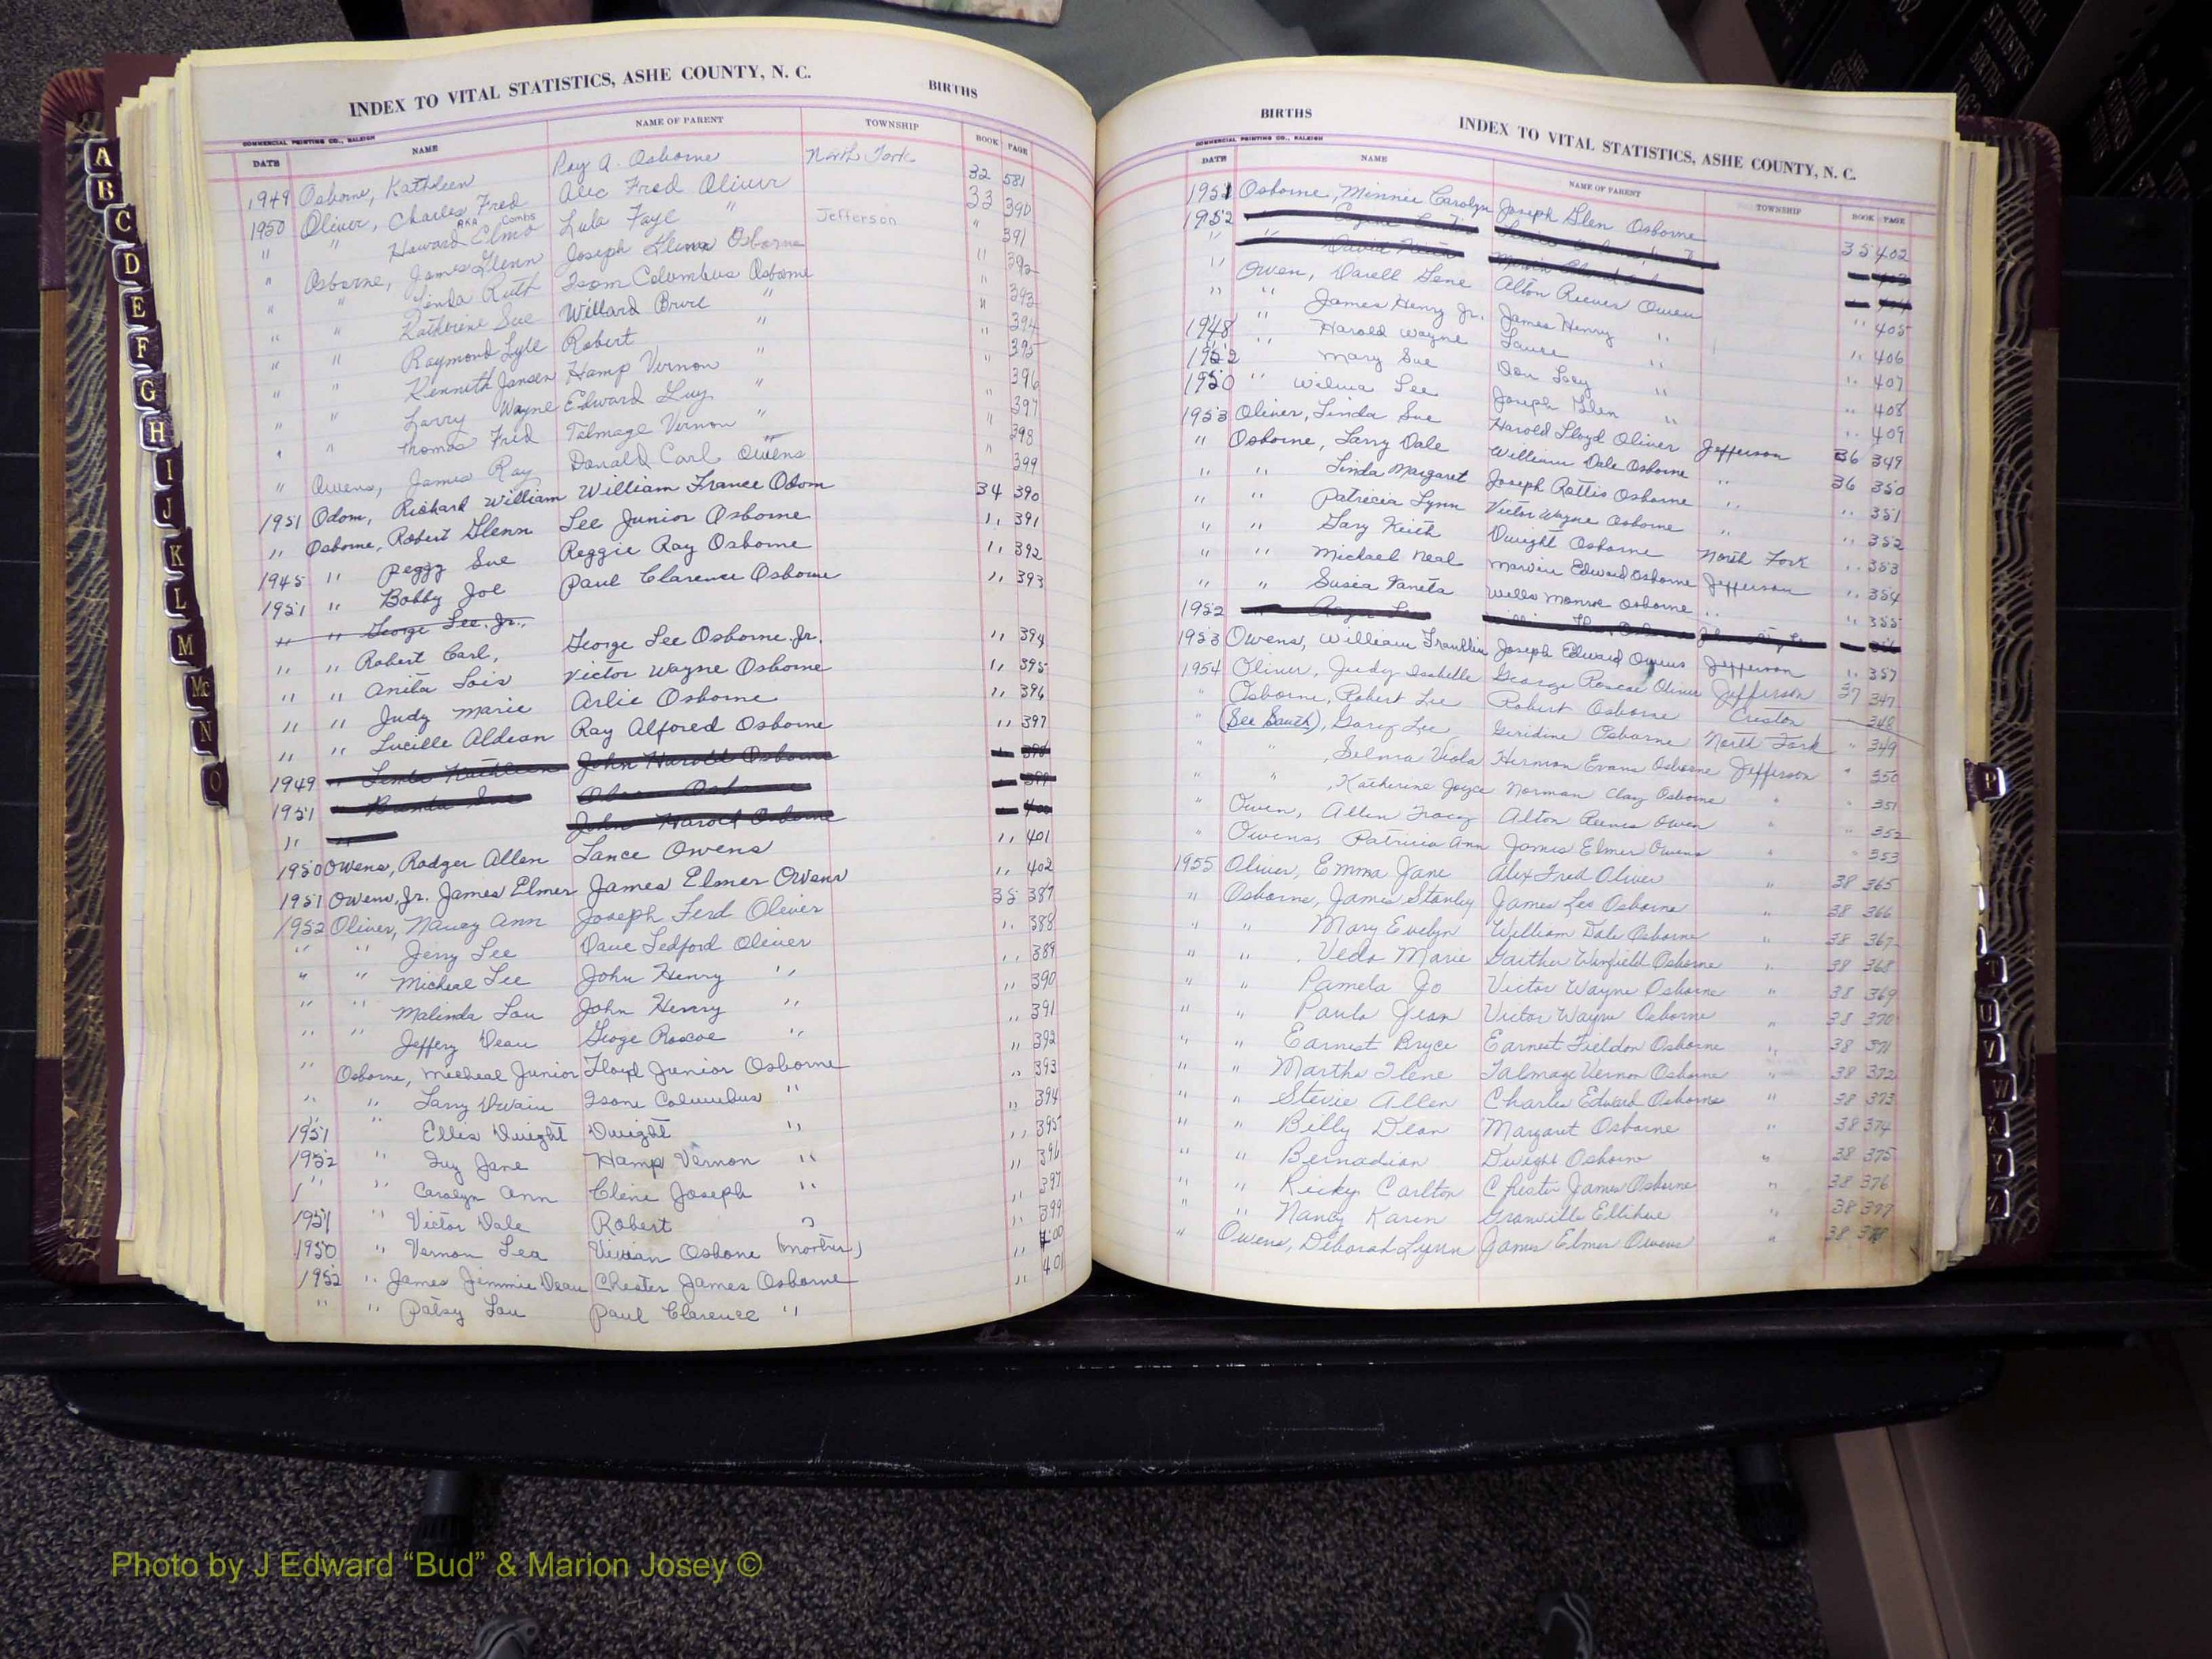 INDEX TO VITAL STATISTICS, ASHE COUNTY, N. C. BIRTHS
COMMERCIAL PRINTING CO., RALEIGH
DATE NAME NAME OF PARENT TOWNSHIP BOOK PAGE
1949 Osborne, Kathleen Roy A. Osborne North Fork 32 581
1950 Oliver, Charles Fred Alec Fred Oliver 33 390
AKA Combs
" " Howard Elmo Lula Faye " Jefferson " 391
" Osborne, James Glenn Joseph Glenn Osborne " 392
" " Linda Ruth Isom Columbus Osborne " 393
" " Katherine Sue Willard Burl " " 394
" " Raymond Lyle Robert " " 395
" " Kenneth Jansen Hamp Vernon " " 396
" " Larry Wayne Edward Guy " " 397
" " Thomas Fred Talmage Vernon " " 398
" Owens, James Ray Donald Carl Owens " 399
1951 Odom, Richard William William France Odom 34 390
" Osborne, Robert Glenn Lee Junior Osborne " 391
1945 " Peggy Sue Reggie Ray Osborne " 392
1951 " Bobby Joe Paul Clarence Osborne " 393
" " George Lee, Jr.,
" " Robert Carl, George Lee Osborne Jr. " 394
" " Anita Lois Victor Wayne Osborne " 395
" " Judy Marie Arlie Osborne " 396
" " Lucille Aldean Ray Alfored Osborne " 397
1949 " Linda Kathleen John Harold Osborne
1951 " Brenda Sue
" John Harold Osborne 400
1950 Owens, Rodger Allen Lance Owens " 401
1951 Owens, Jr. James Elmer James Elmer Owens " 402
1952 Oliver, Nancy Ann Joseph Ferd Oliver 35 387
" " Jerry Lee Dave Ledford Oliver " 388
" " Micheal Lee John Henry " " 389
" " Malinda Lou John Henry " " 390
" " Jeffery Dean Geoge Roscoe " " 391
" Osborne, Micheal Junior Floyd Junior Osborne " 392
" " Larry Dwain Isom Columbus " " 393
1951 " Ellis Dwight Dwight " " 394
1952 " Guy Jane Hamp Vernon " " 395
" " Carolyn Ann Cline Joseph " " 396
1951 " Victor Dale Robert " " 397
1950 " Vernon Lea Vivian Osborne (mother) " 399
1952 " James Jimmie Dean Chester James Osborne " 400
" " Patsy Lou Paul Clarence " " 401
BIRTHS INDEX TO VITAL STATISTICS, ASHE COUNTY, N. C.
COMMERCIAL PRINTING CO., RALEIGH
DATE NAME NAME OF PARENT TOWNSHIP BOOK PAGE
1951 Osborne, Minnie Carolyn Joseph Glen Osborne 35 402
1952
" David
" Owen, Darell Gene Alton Reeves Owen " 405
" " James Henry Jr. James Henry " " 406
1948 " Harold Wayne Lance " " 407
1952 Mary Sue Don " " 408
1950 " Wilma Lee Joseph Glen " " 409
1953 Oliver, Linda Sue Harold Lloyd Oliver Jefferson 36 349
" Osborne, Larry Dale William Dale Osborne " 36 350
" " Linda Margaret Joseph Rottis Osborne " " 351
" " Patricia Lynn Victor Wayne Osborne " " 352
" " Gary Keith Dwight Osborne North Fork " 353
" " Michael Neal Marvin Edward Osborne Jefferson " 354
" " Susea Vaneta Wells Monroe Osborne " " 355
1952
1953 Owens, William Franklin Joseph Edward Owens Jefferson " 357
1954 Oliver, Judy Isabelle George Roscoe Oliver Jefferson 37 347
" Osborne, Robert Lee Robert Osborne Creston 348
" (See South), Gary Lee Giridine Osborne North Fork " 349
" " , Selma Viola Herman Evans Osborne Jefferson " 350
" " , Katherine Joyce Norman Clay Osborne " " 351
" Owen, Allen Tracy Alton Reeves Owen " " 352
" Owens, Patricia Ann James Elmer Owens " " 353
1955 Oliver, Emma Jane Alex Fred Oliver " 38 365
" Osborne, James Stanley James Lee Osborne 38 366
" " Mary Evelyn William Dale Osborne " 38 367
" " Veda Marie Gaither Winfield Osborne " 38 368
" " Pamela Jo Victor Wayne Osborne " 38 369
" " Paula Jean Victor Wayne Osborne " 38 370
" " Earnest Bryce Earnest Fieldon Osborne " 38 371
" " Martha Ilene Talmage Vernon Osborne " 38 372
" " Stevie Allen Charles Edward Osborne " 38 373
" " Billy Dean Margaret Osborne " 38 374
" " Bernadian Dwight Osborn " 38 375
" " Ricky Carlton Chester James Osborne " 38 376
" " Nancy Karen Granville Ellihue " 38 377
" Owens, Deborah Lynn James Elmer Owens " 38 378
A
B
C
D
E
F
G
H
I
J
K
L
M
Mc
N
O
P
T
U
V
W
X
Y
Z
Photo by J Edward “Bud” & Marion Josey ©